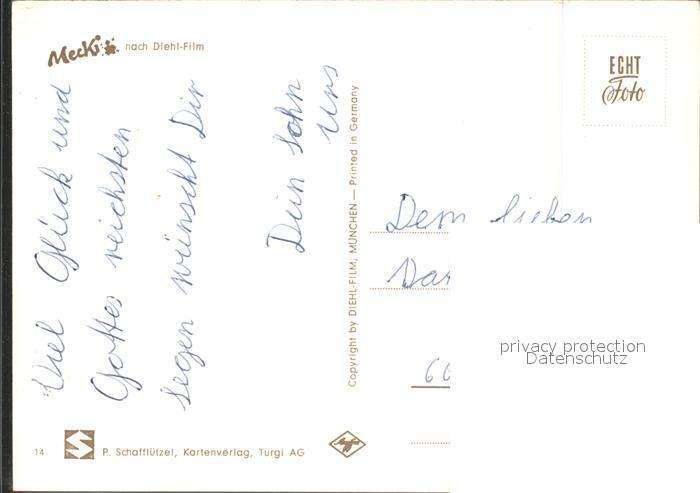 Mecki nach Diehl-Film
ECHT
Foto
Viel Glück und
Gottes reichsten
Segen wünscht Dir
Dein Sohn
Urs
Copyright by DIEHL-FILM, MÜNCHEN — Printed in Germany
Dem lieben
privacy protection
Datenschutz
14 P. Schafflützel, Kartenverlag, Turgi AG
Agfa